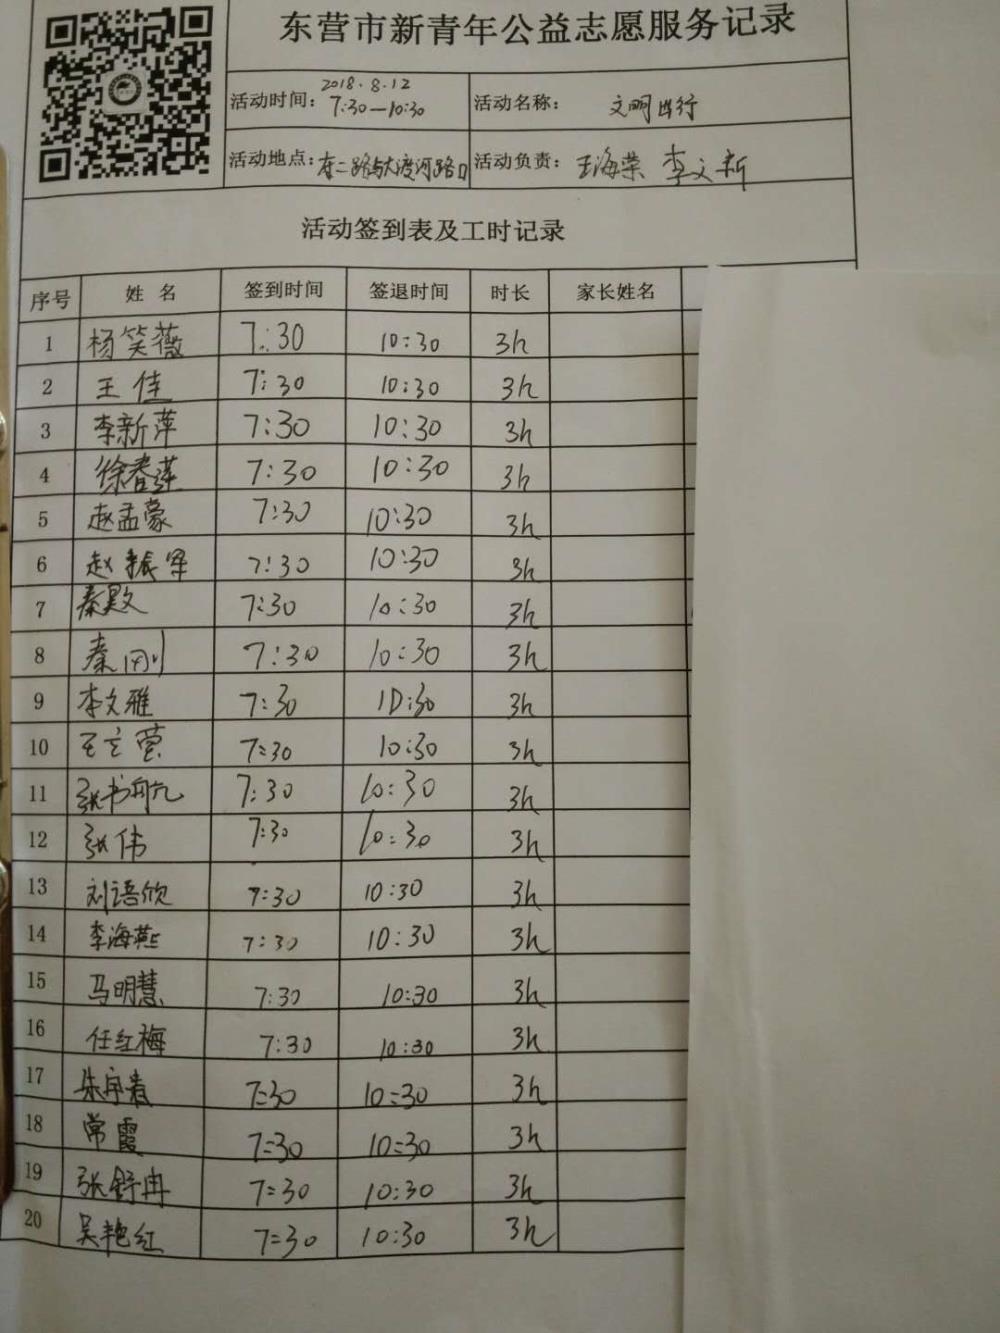 东营市新青年公益志愿服务记录
活动时间: 2018.8.12 7:30—10:30 活动名称: 文明出行
活动地点: 东二路与大渡河路口 活动负责: 王海荣 李文新
活动签到表及工时记录
序号 姓 名 签到时间 签退时间 时长 家长姓名
1 杨笑薇 7:30 10:30 3h
2 王佳 7:30 10:30 3h
3 李新萍 7:30 10:30 3h
4 徐春莲 7:30 10:30 3h
5 赵孟蒙 7:30 10:30 3h
6 赵振军 7:30 10:30 3h
7 秦 7:30 10:30 3h
8 秦刚 7:30 10:30 3h
9 李文雅 7:30 10:30 3h
10 王立莹 7:30 10:30 3h
11 张书航 7:30 10:30 3h
12 张伟 7:30 10:30 3h
13 刘语欣 7:30 10:30 3h
14 李海燕 7:30 10:30 3h
15 马明慧 7:30 10:30 3h
16 任红梅 7:30 10:30 3h
17 朱宇 7:30 10:30 3h
18 常霞 7:30 10:30 3h
19 张舒冉 7:30 10:30 3h
20 吴艳红 7:30 10:30 3h